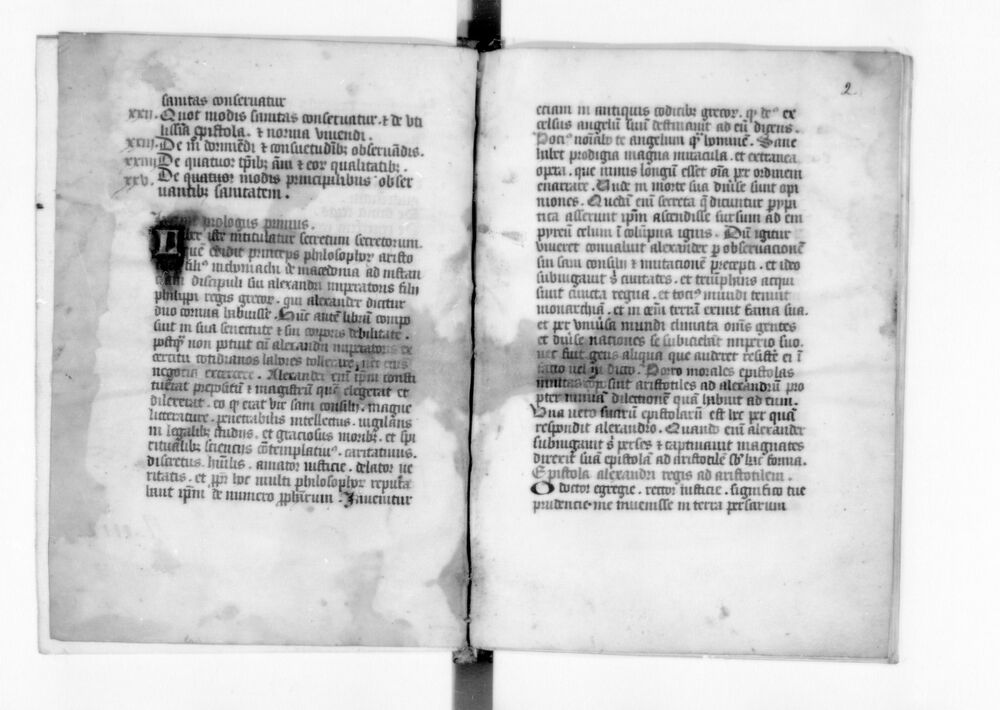 sanitas conseruatur
xxii. Quot modis sanitas conseruatur. ⁊ de vti
lissīa epistola. ⁊ norma viuendi.
xxiii. De mō dormiēdi ⁊ consuetudībꝫ obseruādis.
xxiiii De quatuor tꝑibꝫ āni ⁊ eoꝝ qualitatibꝫ.
xxv. De quatuor modis principilibus obser
uantibꝫ sanitatem.
prologus primus.
Liber iste intitulatur secretum secretorum.
quē edidit princeps philosophoꝝ aristo
filiꝰ nichomachi de macedonia ad instan
ciam discipuli sui alexandri imperatoris filii
philippi regis grecoꝝ. qui alexander dicitur
duo cornua habuisse. Hūc autē librū compo
suit in sua senectute ⁊ sui corporis debilitate.
postqȝ non potuit cū alexandri imperatoris ex
ercitu cotidianos labores tollerare, nec eius
negocia exercere. Alexander eni͞ ipm̄ consti
tuerat prepositū ⁊ magistrū quē elegerat et
dilexerat. eo qȝ erat vir sani consilii. magne
litterature. penetrabilis intellectus. vigilans
in legalibꝫ studiis. et graciosus moribꝫ. et spi
ritualibꝫ scienciis cōtemplatiuꝰ. caritatiuus.
discretus. hūilis. amator iusticie. delator ue
ritatis. et ꝓp̄ hoc multi philosophoꝝ reputa
bāt ipm̄ de numero ꝓph̄arum. Inuenitur
2
eciam in antiquis codicibꝫ grecoꝝ. qȝ deꝰ ex
celsus angelū suū destinauit ad eū dicens.
Pociꝰ noīabo te angelum qȝ hominē. Sane
habet prodigia magna miracula. et extranea
opera. que nimis longū esset oīa per ordinem
enarrare. Unde in morte sua diuīse sunt opi
niones. Quedā eni͞ secreta q̄ dicuntur pypa
tica asserunt ipm̄ ascendisse sursum ad em
pyreū celum ī colūpna ignis. Dū igitur
viueret conualuit alexander ꝑ obseruacionē
sui sani consilii ⁊ imitacionē p̄cepti. et ideo
subiugauit s̄ ciuitates. et triūphans acqui
siuit cuncta regna. et tociꝰ mundi tenuit
monarchiā. et in oēm terrā exiuit fama sua.
et per vniūsa mundi climata omēs gentes
et diūse nationes se subiciebāt imperio suo.
nec fuit gens aliqua que auderet resistē ei ī
facto uel in dicto. Porro morales epistolas
multas cōposuit aristotiles ad alexandrū pro
pter nimiā dilectionē quā habuit ad eum.
Una uero suarū epistolarū est hec per quā
respondit alexandro. Quando eni͞ alexander
subiugauit s̄ perses ⁊ captiuauit magnates
direxit suā epistolā ad aristotilē sb̄ hac forma.
Epistola alexandri regis ad aristotilem.
O doctor egregie. rector iusticie. significo tue
prudencie me inuenisse in terra persarum